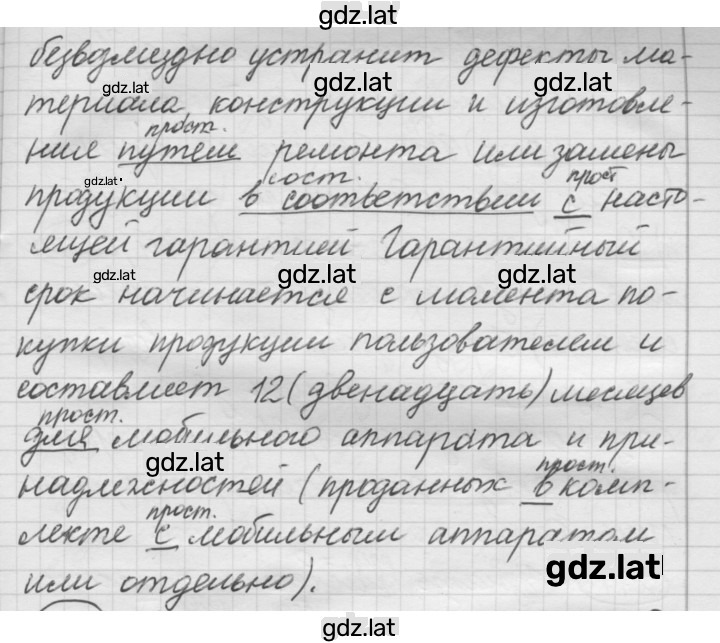 gdz.lat
безвозмездно устранит дефекты ма-
gdz.lat gdz.lat gdz.lat
териала конструкции и изготовле-
прост.
ние путем ремонта или замены
gdz.lat сост. прост
продукции в соответствии с насто-
ящей гарантией Гарантийный
gdz.lat gdz.lat gdz.lat
срок начинается с момента по-
купки продукции пользователем и
составляет 12 (двенадцать) месяцев
прост.
для мобильного аппарата и при-
gdz.lat прост.
надлежностей (проданных в комп-
прост.
лекте с мобильным аппаратом
или отдельно).
gdz.lat
gdz.lat